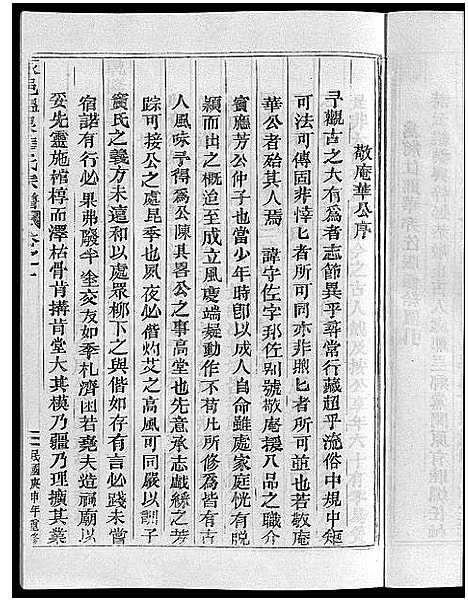 敬庵華公序
予觀古之大有為者志節異乎尋常行藏超乎流俗中規中矩
可法可傳固非悻匕者所可同亦非照匕者所可並也若敬庵
華公者殆其人焉 諱宇佐字邦佐别號敬庵援八品之職介
賓應芳公仲子也當少年時即以成人自命雖處家庭恍有脱
穎而出之概迨至成立風度端凝動作不苟凡所修為皆有古
人風味予得為公陳其畧公之事高堂也先意承志戯綵之芳
踪可接公之處昆季也夙夜必偕灼艾之高風可同嚴以訓子
竇氏之義方未遠和以處眾柳下之與偕如存有言必踐未嘗
宿諾有行必果弗廢半塗交友如季札濟困若堯夫造祠廟以
妥先靈施棺椁而澤枯骨肯搆肯堂大其模乃疆乃理擴其業
民國庚申年重修